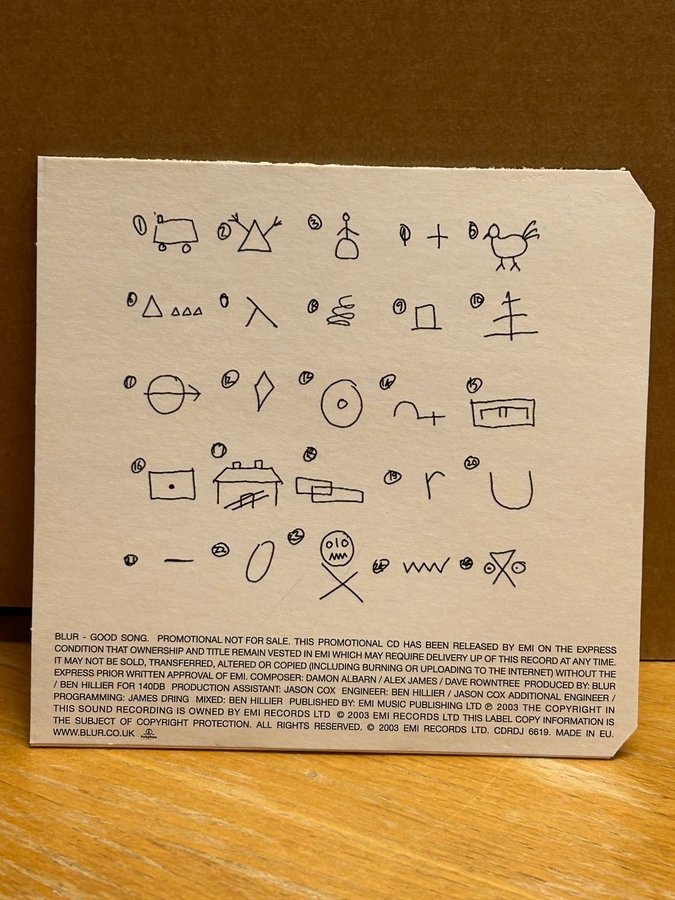 1 2 3 4 5
6 7 8 9 10
11 12 13 14 15
16 17 18 19 r 20
21 22 23 24 25
BLUR - GOOD SONG. PROMOTIONAL NOT FOR SALE. THIS PROMOTIONAL CD HAS BEEN RELEASED BY EMI ON THE EXPRESS
CONDITION THAT OWNERSHIP AND TITLE REMAIN VESTED IN EMI WHICH MAY REQUIRE DELIVERY UP OF THIS RECORD AT ANY TIME.
IT MAY NOT BE SOLD, TRANSFERRED, ALTERED OR COPIED (INCLUDING BURNING OR UPLOADING TO THE INTERNET) WITHOUT THE
EXPRESS PRIOR WRITTEN APPROVAL OF EMI. COMPOSER: DAMON ALBARN / ALEX JAMES / DAVE ROWNTREE PRODUCED BY: BLUR
/ BEN HILLIER FOR 140DB PRODUCTION ASSISTANT: JASON COX ENGINEER: BEN HILLIER / JASON COX ADDITIONAL ENGINEER /
PROGRAMMING: JAMES DRING MIXED: BEN HILLIER PUBLISHED BY: EMI MUSIC PUBLISHING LTD ℗ 2003 THE COPYRIGHT IN
THIS SOUND RECORDING IS OWNED BY EMI RECORDS LTD © 2003 EMI RECORDS LTD THIS LABEL COPY INFORMATION IS
THE SUBJECT OF COPYRIGHT PROTECTION. ALL RIGHTS RESERVED. © 2003 EMI RECORDS LTD. CDRDJ 6619. MADE IN EU.
WWW.BLUR.CO.UK